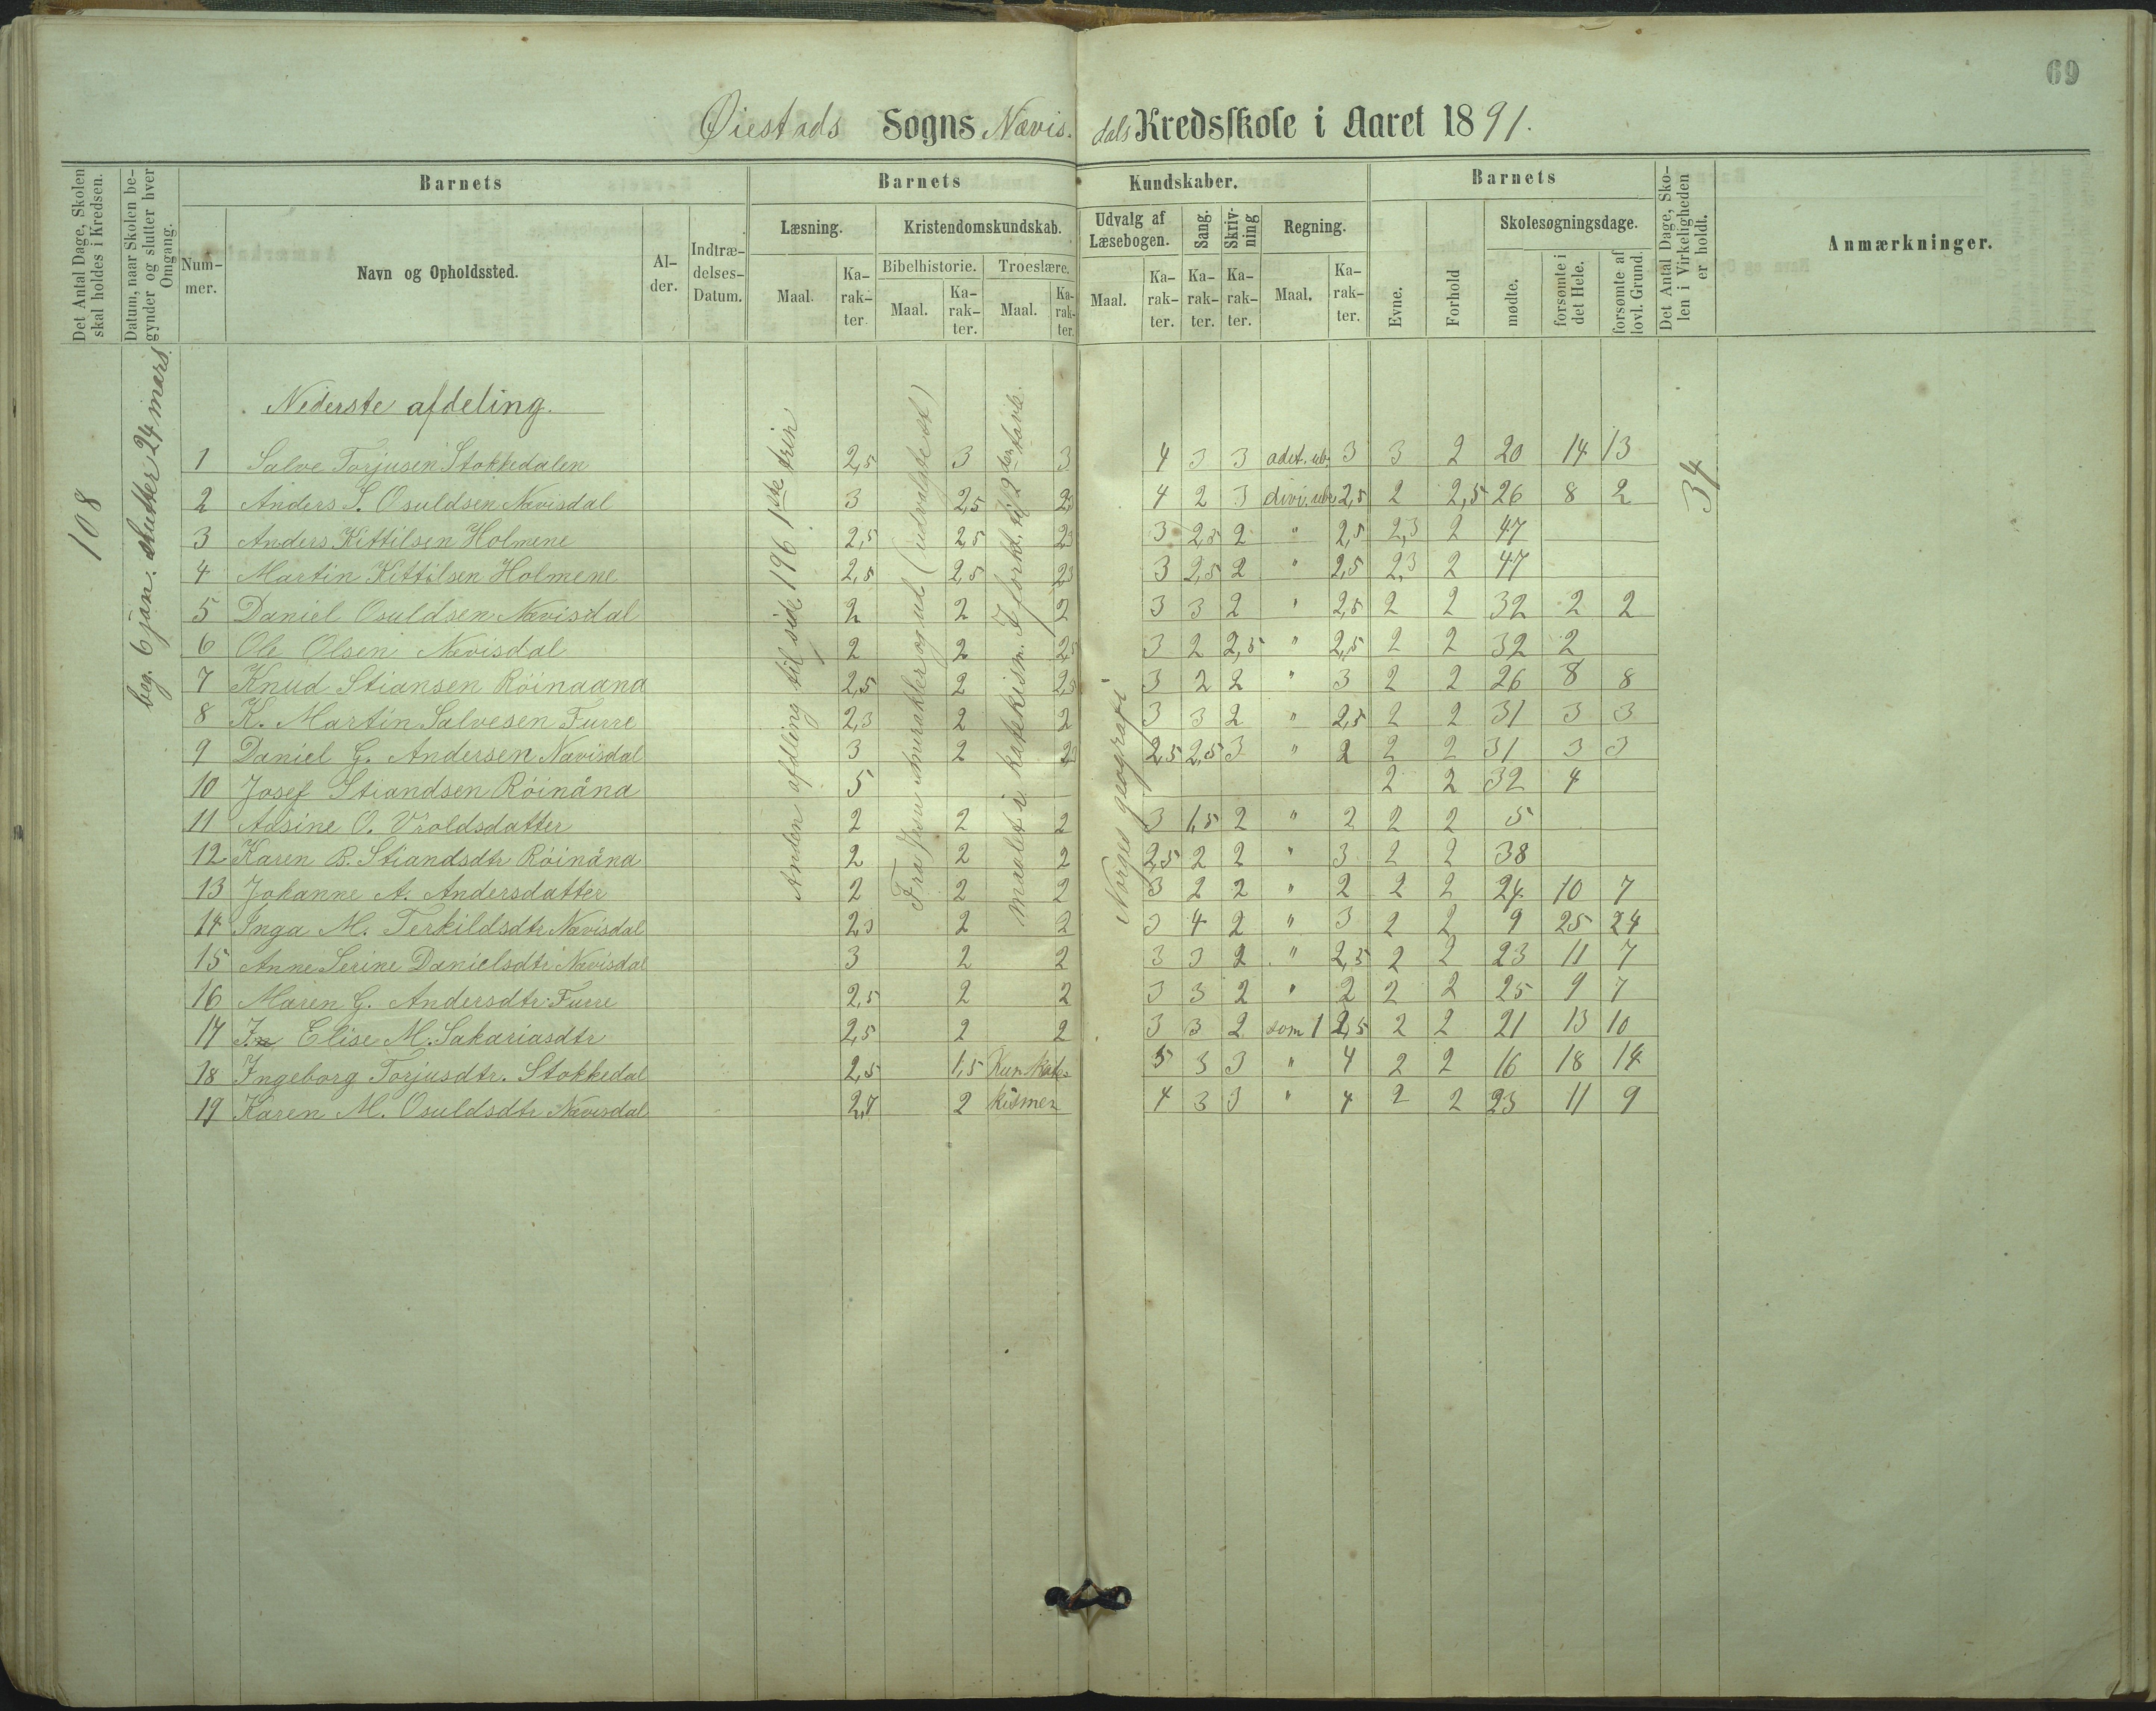 69
Øiestads Sogns Nævis. dals Kredsskole i Aaret 1891.
Det Antal Dage, Skolen skal holdes i Kredsen.
Datum, naar Skolen begynder og slutter hver Omgang.
Barnets
Barnets
Kundskaber.
Barnets
Det Antal Dage, Skolen i Virkeligheden er holdt.
Anmærkninger.
Nummer.
Navn og Opholdssted.
Alder.
Indtrædelses-Datum.
Læsning.
Kristendomskundskab.
Udvalg af Læsebogen.
Sang.
Skrivning
Regning.
Evne.
Forhold
Skolesøgningsdage.
Bibelhistorie.
Troeslære.
Maal.
Karakter.
Maal.
Karakter.
Maal.
Karakter.
Maal.
Karakter.
Karakter.
Karakter.
Maal.
Karakter.
mødte.
forsømte i det Hele.
forsømte af lovl. Grund.
108
beg. 6 jan. slutter 24 mars.
Anden afdeling til side 196. 1ste trin
(udvalgte st)
maalet i katekism.
Norges geografi
34
Nederste afdeling.
1 Salve Torjusen Stokkedalen 2,5 3 3 4 3 3 adit. ub. 3 3 2 20 14 13
2 Anders S. Osuldsen Nævisdal 3 2,5 2,3 4 2 3 divi. ub. 2,5 2 2,5 26 8 2
3 Anders Kittilsen Holmene 2,5 2,5 2,3 3 2,5 2 " 2,5 2,3 2 47
4 Martin Kittilsen Holmene 2,5 2,5 2,3 3 2,5 2 " 2,5 2,3 2 47
5 Daniel Osuldsen Nævisdal 2 2 2 3 3 2 " 2,5 2 2 32 2 2
6 Ole Olsen Nævisdal 2 2 2,5 3 2 2,5 " 2,5 2 2 32 2
7 Knud Stiansen Röinaana 2,5 2 2,5 3 2 2 " 3 2 2 26 8 8
8 K. Martin Salvesen Furre 2,3 2 2 3 3 2 " 2,5 2 2 31 3 3
9 Daniel G. Andersen Nævisdal 3 2 2 2,5 2,5 3 " 2 2 2 31 3 3
10 Josef Stiandsen Röinåna 5 2 2 32 4
11 Adsine O. Vroldsdatter 2 2 2 3 1,5 2 " 2 2 2 5
12 Karen B. Stiandsdtr Röinåna 2 2 2 2,5 2 2 " 3 2 2 38
13 Johanne A. Andersdatter 2 2 2 3 2 2 " 2 2 2 24 10 7
14 Inga M. Terkildsdtr Nævisdal 2,3 2 2 3 4 2 " 3 2 2 9 25 24
15 Anne Serine Danielsdtr Nævisdal 3 2 2 3 3 2 " 2,5 2 2 23 11 7
16 Maren G. Andersdtr Furre 2,5 2 2 3 3 2 " 2 2 2 25 9 7
17 Elise M. Sakariasdtr 2,5 2 2 3 3 2 som 1 2,5 2 2 21 13 10
18 Ingeborg Torjusdtr. Stokkedal 2,5 1,5 Kun kate- 5 3 3 " 4 2 2 16 18 14
19 Karen M. Osuldsdtr Nævisdal 2,7 2 kismen 4 3 3 " 4 2 2 23 11 9